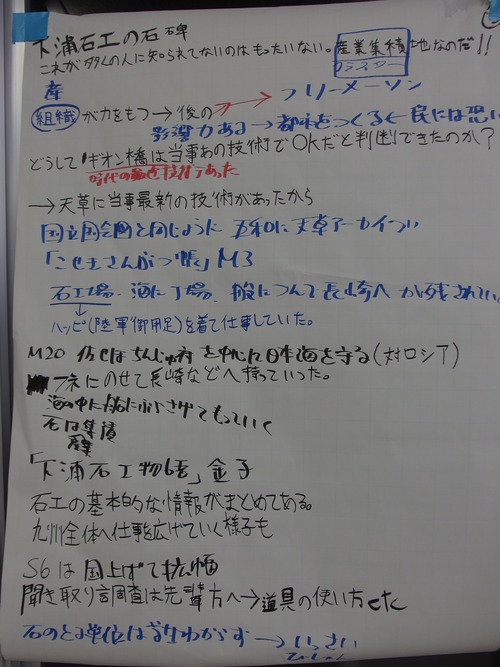 下浦石工の石碑
これが多くの人に知られてないのはもったいない。産業集積地なのだ!!
クラスター
産
組織が力をもつ→後の フリーメーソン
影響力ある→都市をつくる←民には恐い
どうしてギオン橋は当事あの技術でOKだと判断できたのか?
時代の最先技術であった
→天草に当事最新の技術があったから
国立国会図と同じように 五和に天草アーカイブ
「こせきさんぶつ帳」M3
石工場、海に丁場、船につんで長崎へ が残されてい
ハッピ(陸軍御用足)を着て仕事していた。
M20 佐せぼちんじゅ府を中心に日本海を守る(対ロシア)
フネにのせて長崎などへ持っていった。
海の中に船にぶらさげてもっていく
石は集積
産業
「下浦石工物語」金子
石工の基本的な情報がまとめてある。
九州全体へ仕事を広げていく様子も
S6は 国上げて拡幅
聞き取り調査は先輩方へ→道具の使い方
石のとる単位は わからず→いっさい